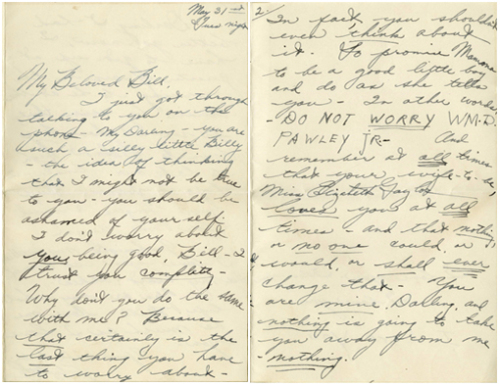 May 31st
Tues night
My Beloved Bill,
I just got through
talking to you on the
phone - My Darling - you are
such a silly little Billy
- the idea of thinking
that I might not be true
to you - you should be
ashamed of your self
I don't worry about
you being good, Bill - I
trust you completly -
Why don't you do the same
with me? Because
that certainly is the
last thing you have
to worry about -
2.
In fact you shouldn't
even think about
it. So promise Mama
to be a good little boy
and do as she tells
you - In other words
DO NOT WORRY WM. D.
PAWLEY JR - And
remember at all times
that your wife-to-be,
Miss Elizabeth Taylor
loves you at all
times - and that nothing
or no one could, or
would, or shall ever
change that - You
are mine, Darling, and
nothing is going to take
you away from me
- nothing.